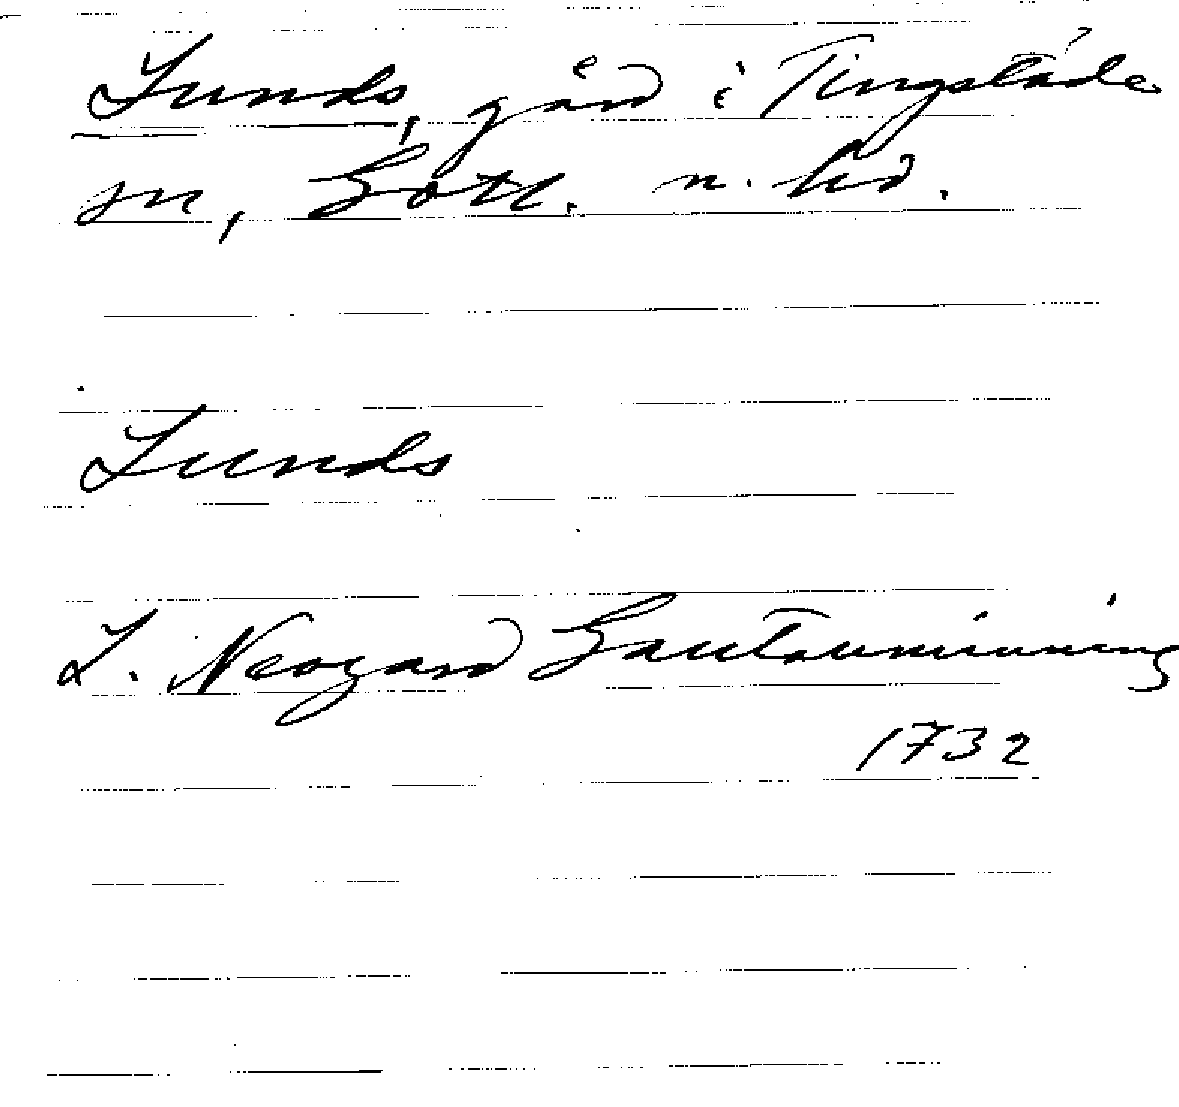 Lunds, gård i Tingstäde
sn, Gotl. n. hd.
Lunds
L. Neogard Gautauminning
1732